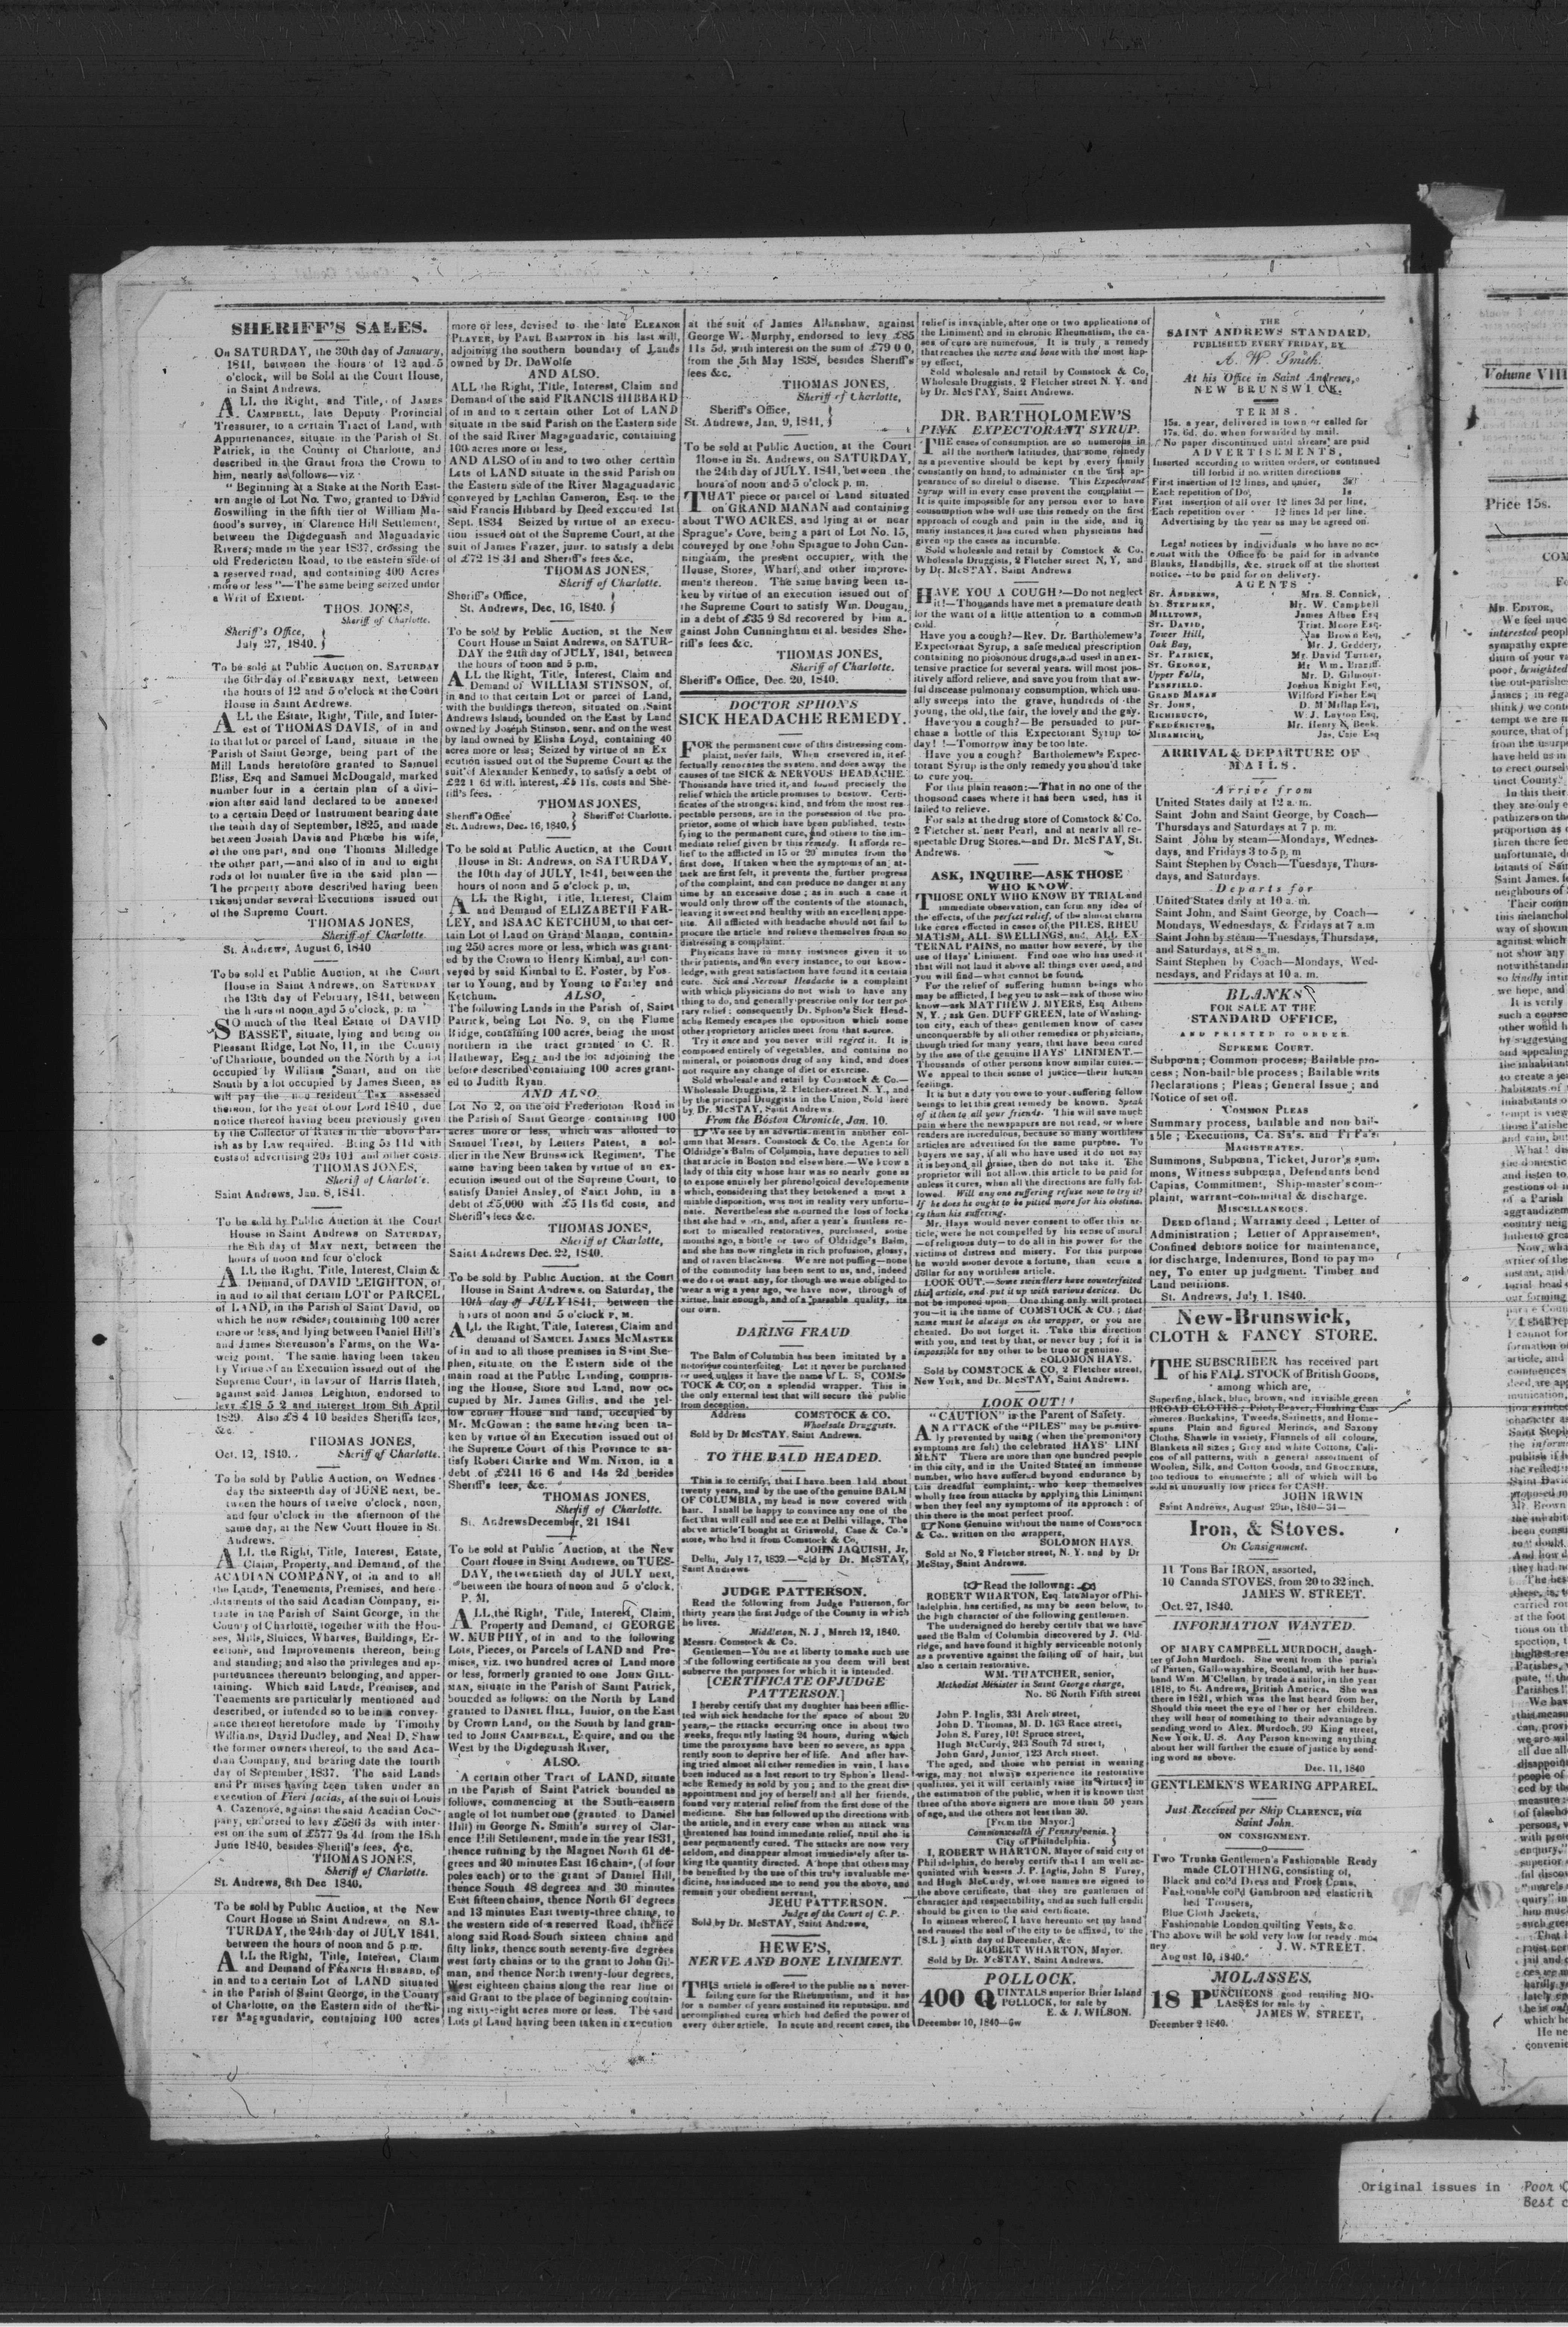 SHERIFF'S SALES.
On SATURDAY, the 30th day of January,
1841, between the hours of 12 and 5
o'clock, will be Sold at the Court House,
in Saint Andrews.
ALL the Right, and Title, of JAMES
CAMPBELL, late Deputy Provincial
Treasurer, to a certain Tract of Land, with
Appurtenances, situate in the Parish of St.
Patrick, in the County of Charlotte, and
described in the Grant from the Crown to
him, nearly as follows—viz
"Beginning at a Stake at the North East-
ern angle of Lot No. Two, granted to David
Boswilling in the fifth tier of William Ma-
hood's survey, in Clarence Hill Settlement,
between the Digdeguash and Maguadavic
Rivers; made in the year 1837, crossing the
old Fredericton Road, to the eastern side of
a reserved road, and containing 400 Acres
more or less"—The same being seized under
a Writ of Extent.
THOS. JONES,
Sheriff of Charlotte.
Sheriff's Office,
July 27, 1840.
To be sold at Public Auction on, SATURDAY
the 6th day of FEBRUARY next, between
the hours of 12 and 5 o'clock at the Court
House in Saint Andrews.
ALL the Estate, Right, Title, and Inter-
est of THOMAS DAVIS, of in and
to that lot or parcel of Land, situate in the
Parish of Saint George, being part of the
Mill Lands heretofore granted to Samuel
Bliss, Esq and Samuel McDougald, marked
number four in a certain plan of a divi-
sion after said land declared to be annexed
to a certain Deed or Instrument bearing date
the tenth day of September, 1825, and made
between Josiah Davis and Phœbe his wife,
of the one part, and one Thomas Milledge
the other part,—and also of in and to eight
rods of lot number five in the said plan—
The property above described having been
taken under several Executions issued out
of the Supreme Court.
THOMAS JONES,
Sheriff of Charlotte.
St. Andrews, August 6, 1840
To be sold at Public Auction, at the Court
House in Saint Andrews, on SATURDAY
the 13th day of February, 1841, between
the hours of noon and 5 o'clock, p. m
SO much of the Real Estate of DAVID
BASSET, situate, lying and being on
Pleasant Ridge, Lot No, 11, in the County
of Charlotte, bounded on the North by a lot
occupied by William Smart, and on the
South by a lot occupied by James Steen, as
will pay the non resident Tax assessed
thereon, for the year of our Lord 1840, due
notice thereof having been previously given
by the Collector of Rates in the above Par-
ish as by Law required. Being 5s 11d with
costs of advertising 20s 10d and other costs.
THOMAS JONES,
Sheriff of Charlotte.
Saint Andrews, Jan. 8, 1841.
To be sold by Public Auction at the Court
House in Saint Andrews on SATURDAY,
the 8th day of MAY next, between the
hours of noon and four o'clock
ALL the Right, Title, Interest, Claim &
Demand, of DAVID LEIGHTON, of
in and to all that certain LOT or PARCEL
of LAND, in the Parish of Saint David, on
which he now resides; containing 100 acres
more or less, and lying between Daniel Hill's
and James Stevenson's Farms, on the Wa-
weig point. The same having been taken
by Virtue of an Execution issued out of the
Supreme Court, in favour of Harris Hatch,
against said James Leighton, endorsed to
levy £18 5 2 and interest from 8th April
1829. Also £8 4 10 besides Sheriffs fees,
&c.
THOMAS JONES,
Oct. 12, 1840. Sheriff of Charlotte.
To be sold by Public Auction, on Wednes-
day the sixteenth day of JUNE next, be-
tween the hours of twelve o'clock, noon,
and four o'clock in the afternoon of the
same day, at the New Court House in St.
Andrews.
ALL the Right, Title, Interest, Estate,
Claim, Property, and Demand, of the
ACADIAN COMPANY, of in and to all
the Lands, Tenements, Premises, and here-
ditaments of the said Acadian Company, si-
tuate in the Parish of Saint George, in the
County of Charlotte, together with the Hou-
ses, Mills, Sluices, Wharves, Buildings, Er-
ections, and Improvements thereon, being
and standing; and also the privileges and ap-
purtenances thereunto belonging, and apper-
taining. Which said Lands, Premises, and
Tenements are particularly mentioned and
described, or intended so to be in a convey-
ance thereof heretofore made by Timothy
Williams, David Dudley, and Neal D. Shaw
the former owners thereof, to the said Aca-
dian Company, and bearing date the fourth
day of September, 1837. The said Lands
and Premises having been taken under an
execution of Fieri facias, at the suit of Louis
A. Cazenove, against the said Acadian Com-
pany, endorsed to levy £586 3s with inter-
est on the sum of £577 9s 4d from the 18th
June 1840, besides Sheriff's fees, &c.
THOMAS JONES,
Sheriff of Charlotte.
St. Andrews, 8th Dec 1840,
To be sold by Public Auction, at the New
Court House in Saint Andrews, on SA-
TURDAY, the 24th day of JULY 1841,
between the hours of noon and 5 p.m.
ALL the Right, Title, Interest, Claim
and Demand of FRANCIS HIBBARD, of
in and to a certain Lot of LAND situated
in the Parish of Saint George, in the County
of Charlotte, on the Eastern side of the Ri-
ver Magaguadavic, containing 100 acres
more or less, devised to the late ELEANOR
PLAYER, by PAUL BAMPTON in his last will,
adjoining the southern boundary of Lands
owned by Dr. DeWolfe
AND ALSO.
ALL the Right, Title, Interest, Claim and
Demand of the said FRANCIS HIBBARD
of in and to a certain other Lot of LAND
situate in the said Parish on the Eastern side
of the said River Magaguadavic, containing
100 acres more or less,
AND ALSO of in and to two other certain
Lots of LAND situate in the said Parish on
the Eastern side of the River Magaguadavic
conveyed by Lachlan Cameron, Esq. to the
said Francis Hibbard by Deed executed 1st
Sept. 1834 Seized by virtue of an execu-
tion issued out of the Supreme Court, at the
suit of James Frazer, junr. to satisfy a debt
of £72 18 3½ and Sheriff's fees &c.
THOMAS JONES,
Sheriff of Charlotte.
Sheriff's Office,
St. Andrews, Dec. 16, 1840.
To be sold by Public Auction, at the New
Court House in Saint Andrews, on SATUR-
DAY the 24th day of JULY, 1841, between
the hours of noon and 5 p.m.
ALL the Right, Title, Interest, Claim and
Demand of WILLIAM STINSON, of,
in and to that certain Lot or parcel of Land,
with the buildings thereon, situated on Saint
Andrews Island, bounded on the East by Land
owned by Joseph Stinson, senr. and on the west
by land owned by Elisha Loyd, containing 40
acres more or less; Seized by virtue of an Ex
ecution issued out of the Supreme Court at the
suit of Alexander Kennedy, to satisfy a debt of
£22 1 6d with interest, £5 11s. costs and She-
riff's fees.
THOMAS JONES,
Sheriff's Office Sheriff of Charlotte.
St. Andrews, Dec. 16, 1840,
To be sold at Public Auction, at the Court
House in St. Andrews, on SATURDAY,
the 10th day of JULY, 1841, between the
hours of noon and 5 o'clock p. m,
ALL the Right, Title, Interest, Claim
and Demand of ELIZABETH FAR-
LEY, and ISAAC KETCHUM, to that cer-
tain Lot of Land on Grand Manan, contain-
ing 250 acres more or less, which was grant-
ed by the Crown to Henry Kimbal, and con-
veyed by said Kimbal to E. Foster, by Fos-
ter to Young, and by Young to Farley and
Ketchum. ALSO,
The following Lands in the Parish of, Saint
Patrick, being Lot No. 9, on the Flume
Ridge, containing 100 acres, being the most
northern in the tract granted to C. R.
Hatheway, Esq; and the lot adjoining the
before described containing 100 acres grant-
ed to Judith Ryan.
AND ALSO.
Lot No 2, on the old Fredericton Road in
the Parish of Saint George containing 100
acres more or less, which was allotted to
Samuel Treat, by Letters Patent, a sol-
dier in the New Brunswick Regiment. The
same having been taken by virtue of an ex-
ecution issued out of the Supreme Court, to
satisfy Daniel Ansley, of Saint John, in a
debt of £5,000 with £5 11s 6d costs, and
Sheriff's fees &c.
THOMAS JONES,
Sheriff of Charlotte,
Saint Andrews Dec. 22, 1840.
To be sold by Public Auction, at the Court
House in Saint Andrews, on Saturday, the
10th day of JULY 1841, between the
hours of noon and 5 o'clock P. M.
ALL the Right, Title, Interest, Claim and
demand of SAMUEL JAMES MCMASTER
of in and to all those premises in Saint Ste-
phen, situate on the Eastern side of the
main road at the Public Landing, compris-
ing the House, Store and Land, now oc-
cupied by Mr. James Gillis, and the yel-
low corner House and land, occupied by
Mr. McGowan: the same having been ta-
ken by virtue of an Execution issued out of
the Supreme Court of this Province to sa-
tisfy Robert Clarke and Wm. Nixon, in a
debt of £241 16 6 and 14s 2d besides
Sheriff's fees, &c.
THOMAS JONES,
Sheriff of Charlotte.
St. Andrews December, 21 1841
To be sold at Public Auction, at the New
Court House in Saint Andrews, on TUES-
DAY, the twentieth day of JULY next,
between the hours of noon and 5 o'clock,
P. M.
ALL the Right, Title, Interest, Claim,
Property and Demand, of GEORGE
W. MURPHY, of in and to the following
Lots, Pieces, or Parcels of LAND and Pre-
mises, viz. two hundred acres of Land more
or less, formerly granted to one JOHN GILL-
MAN, situate in the Parish of Saint Patrick,
bounded as follows: on the North by Land
granted to DANIEL HILL, Junior, on the East
by Crown Land, on the South by land gran-
ted to JOHN CAMPBELL, Esquire, and on the
West by the Digdeguash River,
ALSO.
A certain other Tract of LAND, situate
in the Parish of Saint Patrick bounded as
follows, commencing at the South-eastern
angle of lot number one (granted to Daniel
Hill) in George N. Smith's survey of Clar-
ence Hill Settlement, made in the year 1831,
thence running by the Magnet North 61 de-
grees and 30 minutes East 16 chains, (of four
poles each) or to the grant of Daniel Hill,
thence South 48 degrees and 30 minutes
East fifteen chains, thence North 61 degrees
and 13 minutes East twenty-three chains, to
the western side of a reserved Road, thence
along said Road South sixteen chains and
fifty links, thence south seventy-five degrees
west forty chains or to the grant to John Gil-
man, and thence North twenty-four degrees,
West eighteen chains along the rear line of
said Grant to the place of beginning contain-
ing sixty-eight acres more or less. The said
Lots of Land having been taken in execution
at the suit of James Allanshaw, against
George W. Murphy, endorsed to levy £85
11s 5d, with interest on the sum of £79 0 0,
from the 5th May 1838, besides Sheriff's
fees &c.
THOMAS JONES,
Sheriff of Charlotte,
Sheriff's Office,
St. Andrews, Jan. 9, 1841,
To be sold at Public Auction, at the Court
House in St. Andrews, on SATURDAY,
the 24th day of JULY, 1841, between the
hours of noon and 5 o'clock p. m.
THAT piece or parcel of Land situated
on GRAND MANAN and containing
about TWO ACRES, and lying at or near
Sprague's Cove, being a part of Lot No. 15,
conveyed by one John Sprague to John Cun-
ningham, the present occupier, with the
House, Stores, Wharf, and other improve-
ments thereon. The same having been ta-
ken by virtue of an execution issued out of
the Supreme Court to satisfy Wm. Dougan,
in a debt of £35 9 8d recovered by him a-
gainst John Cunningham et al. besides She-
riff's fees &c.
THOMAS JONES,
Sheriff of Charlotte.
Sheriff's Office, Dec. 20, 1840.
DOCTOR SPHON'S
SICK HEADACHE REMEDY.
FOR the permanent cure of this distressing com-
plaint, never fails. When persevered in, it ef-
fectually renovates the system, and does away the
causes of the SICK & NERVOUS HEADACHE.
Thousands have tried it, and found precisely the
relief which the article promises to bestow. Certi-
ficates of the strongest kind, and from the most res-
pectable persons, are in the possession of the pro-
prietor, some of which have been published, testi-
fying to the permanent cure, and others to the im-
mediate relief given by this remedy. It affords re-
lief to the afflicted in 15 or 20 minutes from the
first dose. If taken when the symptoms of an at-
tack are first felt, it prevents the further progress
of the complaint, and can produce no danger at any
time by an excessive dose; as in such a case it
would only throw off the contents of the stomach,
leaving it sweet and healthy with an excellent appe-
tite. All afflicted with headache should not fail to
procure the article and relieve themselves from so
distressing a complaint.
Physicans have in many instances given it to
their patients, and in every instance, to our know-
ledge, with great satisfaction have found it a certain
cure. Sick and Nervous Headache is a complaint
with which physicians do not wish to have any
thing to do, and generally prescribe only for tempo-
rary relief: consequently Dr. Sphon's Sick Head-
ache Remedy escapes the opposition which some
other proprietory articles meet from that source.
Try it once and you never will regret it. It is
composed entirely of vegetables, and contains no
mineral, or poisonous drug of any kind, and does
not require any change of diet or exercise.
Sold wholesale and retail by Comstock & Co.—
Wholesale Druggists, 2, Fletcher-street N. Y., and
by the principal Druggists in the Union, Sold here
by, Dr. McSTAY, Saint Andrews
From the Boston Chronicle, Jan. 10.
We see by an advertisement in another col-
umn that Messrs. Comstock & Co. the Agents for
Oldridge's Balm of Columbia, have deputies to sell
that article in Boston and elsewhere.—We know a
lady of this city whose hair was so nearly gone as
to expose entirely her phrenological developements
which, considering that they betokened a most a
miable disposition, was not in reality very unfortu-
nate. Nevertheless she mourned the loss of locks
that she had worn, and, after a year's fruitless re-
sort to miscalled restoratives, purchased, some
months ago, a bottle or two of Oldridge's Balm,
and she has now ringlets in rich profusion, glossy,
and of raven blackness. We are not puffing—none
of the commodity has been sent to us, and, indeed
we do not want any, for though we were obliged to
wear a wig a year ago, we have now, through of
virtue, hair enough, and of a passable quality, its
our own.
DARING FRAUD
The Balm of Columbia has been imitated by a
notorious counterfeiter. Let it never be purchased
or used unless it have the name of L. S, COMS-
TOCK & CO, on a splendid wrapper. This is
the only external test that will secure the public
from deception.
Address COMSTOCK & CO.
Wholesale Druggists.
Sold by Dr McSTAY, Saint Andrews.
TO THE BALD HEADED.
This is to certify, that I have been bald about
twenty years, and by the use of the genuine BALM
OF COLUMBIA, my head is now covered with
hair. I shall be happy to convince any one of the
fact that will call and see me at Delhi village, The
above article I bought at Griswold, Case & Co.'s
store, who had it from Comstock & Co,
JOHN JAQUISH, Jr,
Delhi, July 17, 1839.—Sold by Dr. McSTAY,
Saint Andrews
JUDGE PATTERSON.
Read the following from Judge Patterson, for
thirty years the first Judge of the County in which
he lives.
Middleton, N. J, March 12, 1840.
Messrs. Comstock & Co.
Gentlemen—You are at liberty to make such use
of the following certificate as you deem will best
subserve the purposes for which it is intended.
[CERTIFICATE OF JUDGE
PATTERSON.]
I hereby certify that my daughter has been afflic-
ted with sick headache for the space of about 20
years,—the attacks occurring once in about two
weeks, frequently lasting 24 hours, during which
time the paroxysms have been so severe, as appa
rently soon to deprive her of life. And after hav-
ing tried almost all other remedies in vain, I have
been induced as a last resort to try Sphon's Head-
ache Remedy as sold by you; and to the great dis-
appointment and joy of herself and all her friends,
found very material relief from the first dose of the
medicine. She has followed up the directions with
the article, and in every case when an attack was
threatened has found immediate relief, until she is
near permanently cured. The attacks are now very
seldom, and disappear almost immediately after ta-
king the quantity directed. A hope that others may
be benefited by the use of this truly invaluable me-
dicine, has induced me to send you the above, and
remain your obedient servant,
JEHU PATTERSON.
Judge of the Court of C. P.
Sold by Dr. McSTAY, Saint Andrews,
HEWE'S,
NERVE AND BONE LINIMENT.
THIS article is offered to the public as a never-
failing cure for the Rheumatism, and it has
for a number of years sustained its reputation, and
accomplished cures which had defied the power of
every other article. In acute and recent cases, the
relief is invariable, after one or two applications of
the Liniment, and in chronic Rheumatism, the ca-
ses of cure are numerous. It is truly a remedy
that reaches the nerve and bone with the most hap-
py effect,
Sold wholesale and retail by Comstock & Co,
Wholesale Druggists, 2 Fletcher street N. Y. and
by Dr. McSTAY, Saint Andrews.
DR. BARTHOLOMEW'S
PINK EXPECTORANT SYRUP.
THE cases of consumption are so numerous in
all the northern latitudes, that some remedy
as a preventive should be kept by every family
constantly on hand, to administer on the first ap-
pearance of so direful a disease. This Expectorant
Syrup will in every case prevent the complaint—
It is quite impossible for any person ever to have
consumption who will use this remedy on the first
approach of cough and pain in the side, and in
many instances it has cured when physicians had
given up the cases as incurable.
Sold wholesale and retail by Comstock & Co.
Wholesale Druggists, 2 Fletcher street N, Y, and
by Dr. McSTAY. Saint Andrews
HAVE YOU A COUGH?—Do not neglect
it!—Thousands have met a premature death
for the want of a little attention to a common
cold.
Have you a cough?—Rev. Dr. Bartholemew's
Expectorant Syrup, a safe medical prescription
containing no poisonous drugs, and used in an ex-
tensive practice for several years, will most pos-
itively afford relieve, and save you from that aw-
ful disease pulmonary consumption, which usu-
ally sweeps into the grave, hundreds of the
young, the old, the fair, the lovely and the gay.
Have you a cough?—Be persuaded to pur-
chase a bottle of this Expectorant Syrup to-
day!!—Tomorrow may be too late.
Have you a cough? Bartholemew's Expec-
torant Syrup is the only remedy you should take
to cure you.
For this plain reason:—That in no one of the
thousand cases where it has been used, has it
failed to relieve.
For sale at the drug store of Comstock & Co.
2 Fletcher st. near Pearl, and at nearly all re-
spectable Drug Stores.—and Dr. McSTAY, St.
Andrews.
ASK, INQUIRE—ASK THOSE
WHO KNOW.
THOSE ONLY WHO KNOW BY TRIAL and
immediate observation, can form any idea of
the effects, of the perfect relief, of the almost charm
like cures effected in cases of the PILES, RHEU
MATISM, ALL SWELLINGS, and ALL EX-
TERNAL PAINS, no matter how severe, by the
use of Hays' Liniment. Find one who has used it
that will not laud it above all things ever used, and
you will find—what cannot be found.
For the relief of suffering human beings who
may be afflicted, I beg you to ask—ask of those who
know—ask MATTHEW J. MYERS, Esq. Athens
N. Y.; ask Gen. DUFF GREEN, late of Washing-
ton city, each of these gentlemen know of cases
unconquerable by all other remedies or physicians,
though tried for many years, that have been cured
by the use of the genuine HAYS' LINIMENT.—
Thousands of other persons know similar cures.—
We appeal to their sense of justice—their human
feelings.
It is but a duty you owe to your suffering fellow
beings to let this great remedy be known. Speak
of it then to all your friends. This will save much
pain where the newspapers are not read, or where
readers are incredulous, because so many worthless
articles are advertised for the same purpose. To
buyers we say, if all who have used it do not say
it is beyond all praise, then do not take it. The
proprietor will not allow this article to be paid for
unless it cures, when all the directions are fully fol-
lowed. Will any one suffering refuse now to try it?
If he does he ought to be pitied more for his obstina-
cy than his suffering.
Mr. Hays would never consent to offer this ar-
ticle, were he not compelled by his sense of moral
—of religious duty—to do all in his power for the
victims of distress and misery. For this purpose
he would sooner devote a fortune, than secure a
dollar for any worthless article.
LOOK OUT.—Some swindlers have counterfeited
this article, and put it up with various devices. Do
not be imposed upon. One thing only will protect
you—it is the name of COMSTOCK & CO.; that
name must be always on the wrapper, or you are
cheated. Do not forget it. Take this direction
with you, and test by that, or never buy; for it is
impossible for any other to be true or genuine.
SOLOMON HAYS.
Sold by COMSTOCK & CO. 2 Fletcher street,
New York, and Dr. McSTAY, Saint Andrews.
LOOK OUT!!
"CAUTION" is the Parent of Safety.
AN ATTACK of the "PILES" may be positive-
ly prevented by using (when the premonitory
symptoms are felt) the celebrated HAYS' LINI
MENT There are more than one hundred people
in this city, and in the United States an immense
number, who have suffered beyond endurance by
this dreadful complaint, who keep themselves
wholly free from attacks by applying this Liniment
when they feel any symptoms of its approach: of
this there is the most perfect proof.
None Genuine without the name of COMSTOCK
& Co., written on the wrappers,
SOLOMON HAYS.
Sold at No. 2 Fletcher street, N. Y. and by Dr
McStay, Saint Andrews.
Read the followng:
ROBERT WHARTON, Esq. late Mayor of Phi-
ladelphia, has certified, as may be seen below, to
the high character of the following gentlemen.
The undersigned do hereby certify that we have
used the Balm of Columbia discovered by J. Old-
ridge, and have found it highly serviceable not only
as a preventive against the falling off of hair, but
also a certain restorative.
WM. THATCHER, senior,
Methodist Minister in Saint George charge,
No. 86 North Fifth street
John P. Inglis, 331 Arch street,
John D. Thomas, M. D. 163 Race street,
John S. Furey, 101 Spruce street,
Hugh McCurdy, 243 South 7d street,
John Gard, Junior, 123 Arch street.
The aged, and those who persist in wearing
wigs, may not always experience its restorative
qualities, yet it will certainly raise its [virtues] in
the estimation of the public, when it is known that
three of the above signers are more than 50 years
of age, and the others not less than 30.
[From the Mayor.]
Commonwealth of Pennsylvania.
City of Philadelphia.
I, ROBERT WHARTON, Mayor of said city of
Philadelphia, do hereby certify that I am well ac-
quainted with Messrs J. P. Inglis, John S Furey,
and Hugh McCurdy, whose names are signed to
the above certificate, that they are gentlemen of
character and respectability, and as such full credit
should be given to the said certificate.
In witness whereof, I have hereunto set my hand
and caused the seal of the city to be affixed, to the
[S.L] sixth day of December, &c
ROBERT WHARTON, Mayor.
Sold by Dr. McSTAY, Saint Andrews.
POLLOCK.
400 QUINTALS superior Brier Island
POLLOCK, for sale by
E. & J. WILSON.
December 10, 1840—6w
THE
SAINT ANDREWS STANDARD,
PUBLISHED EVERY FRIDAY, BY
A. W. Smith.
At his Office in Saint Andrews,
NEW BRUNSWICK.
TERMS.
15s. a year, delivered in town or called for
17s. 6d. do. when forwarded by mail.
No paper discontinued until alrears are paid
ADVERTISEMENTS,
Inserted according to written orders, or continued
till forbid if no written directions
First insertion of 12 lines, and under, 3s
Each repetition of Do, 1s
First insertion of all over 12 lines 3d per line,
Each repetition over 12 lines 1d per line.
Advertising by the year as may be agreed on.
Legal notices by individuals who have no ac-
count with the Office to be paid for in advance
Blanks, Handbills, &c. struck off at the shortest
notice.—to be paid for on delivery.
AGENTS
ST. ANDREWS, Mrs. S. Connick,
ST. STEPHEN, Mr. W. Campbell
MILLTOWN, James Albee Esq
ST. DAVID, Trist. Moore Esq.
Tower Hill, Jas Brown Esq,
Oak Bay, Mr. J. Geddery,
ST. PATRICK, Mr. David Turner,
ST. GEORGE, Mr Wm. Braziff.
Upper Falls, Mr. D. Gilmour
PENNFIELD. Joshua Knight Esq,
GRAND MANAN Wilford Fisher Esq
ST. JOHN, D. M'Millan Esq,
RICHIBUCTO, W. J. Layton Esq,
FREDERICTON, Mr. Henry S. Beek.
MIRAMICHI, Jas, Caie Esq
ARRIVAL & DEPARTURE OF
MAILS.
Arrive from
United States daily at 12 a. m.
Saint John and Saint George, by Coach—
Thursdays and Saturdays at 7 p. m.
Saint John by steam—Mondays, Wednes-
days, and Fridays 3 to 5 p. m
Saint Stephen by Coach—Tuesdays, Thurs-
days, and Saturdays.
Departs for
United States daily at 10 a. m.
Saint John, and Saint George, by Coach—
Mondays, Wednesdays, & Fridays at 7 a.m
Saint John by steam—Tuesdays, Thursdays,
and Saturdays, at 8 a. m.
Saint Stephen by Coach—Mondays, Wed-
nesdays, and Fridays at 10 a. m.
BLANKS
FOR SALE AT THE
STANDARD OFFICE,
AND PRINTED TO ORDER.
SUPREME COURT.
Subpœna; Common process; Bailable pro-
cess; Non-bailable process; Bailable writs
Declarations; Pleas; General Issue; and
Notice of set off.
COMMON PLEAS
Summary process, bailable and non bail-
able; Executions, Ca. Sa's. and Fi Fa's.
MAGISTRATES.
Summons, Subpœna, Ticket, Juror's sum.
mons, Witness subpœna, Defendants bond
Capias, Commitment, Ship-master's com-
plaint, warrant-committal & discharge.
MISCELLANEOUS.
DEED of land; Warranty deed; Letter of
Administration; Letter of Appraisement,
Confined debtors notice for maintenance,
for discharge, Indentures, Bond to pay mo
ney, To enter up judgment. Timber and
Land petitions.
St. Andrews, July 1. 1840.
New-Brunswick,
CLOTH & FANCY STORE.
THE SUBSCRIBER has received part
of his FALL STOCK of British Goods,
among which are,
Superfine, black, blue, brown, and invisible green
BROAD CLOTHS; Pilot, Beaver, Flushing Cas-
simeres Buckskins, Tweeds, Satinetts, and Home-
spuns Plain and figured Merinos, and Saxony
Cloths, Shawls in variety, Flannels of all colours,
Blankets all sizes; Grey and white Cottons, Cali-
coes of all patterns, with a general assortment of
Woolen, Silk, and Cotton Goods, and GROCERIES,
too tedious to enumerate; all of which will be
sold at unusually low prices for CASH.
JOHN IRWIN
Saint Andrews, August 29th, 1840—34—
Iron, & Stoves.
On Consignment.
11 Tons Bar IRON, assorted,
10 Canada STOVES, from 20 to 32 inch.
JAMES W. STREET.
Oct. 27, 1840.
INFORMATION WANTED.
OF MARY CAMPBELL MURDOCH, daugh-
ter of John Murdoch. She went from the parish
of Parten, Gallowayshire, Scotland, with her hus-
band Wm. M'Clellan, by trade a sailor, in the year
1818, to St. Andrews, British America. She was
there in 1821, which was the last heard from her,
Should this meet the eye of her or her children.
they will hear of something to their advantage by
sending word to Alex. Murdoch, 99 King street,
New York, U. S. Any Person knowing anything
about her will further the cause of justice by send-
ing word as above.
Dec. 11, 1840
GENTLEMEN'S WEARING APPAREL.
Just Received per Ship CLARENCE, via
Saint John.
ON CONSIGNMENT.
Two Trunks Gentlemen's Fashionable Ready
made CLOTHING, consisting of,
Black and col'd Dress and Frock Coats,
Fashionable col'd Gambroon and elasticrib
bed Trousers,
Blue Cloth Jackets,
Fashionable London quilting Vests, &c.
The above will be sold very low for ready mo-
ney. J. W. STREET.
August 10, 1840.
MOLASSES.
18 PUNCHEONS good retailing MO-
LASSES for sale by
JAMES W. STREET,
December 2 1840.
Volume VIII
Price 15s.
MR. EDITOR,
Original issues in Poor
Best